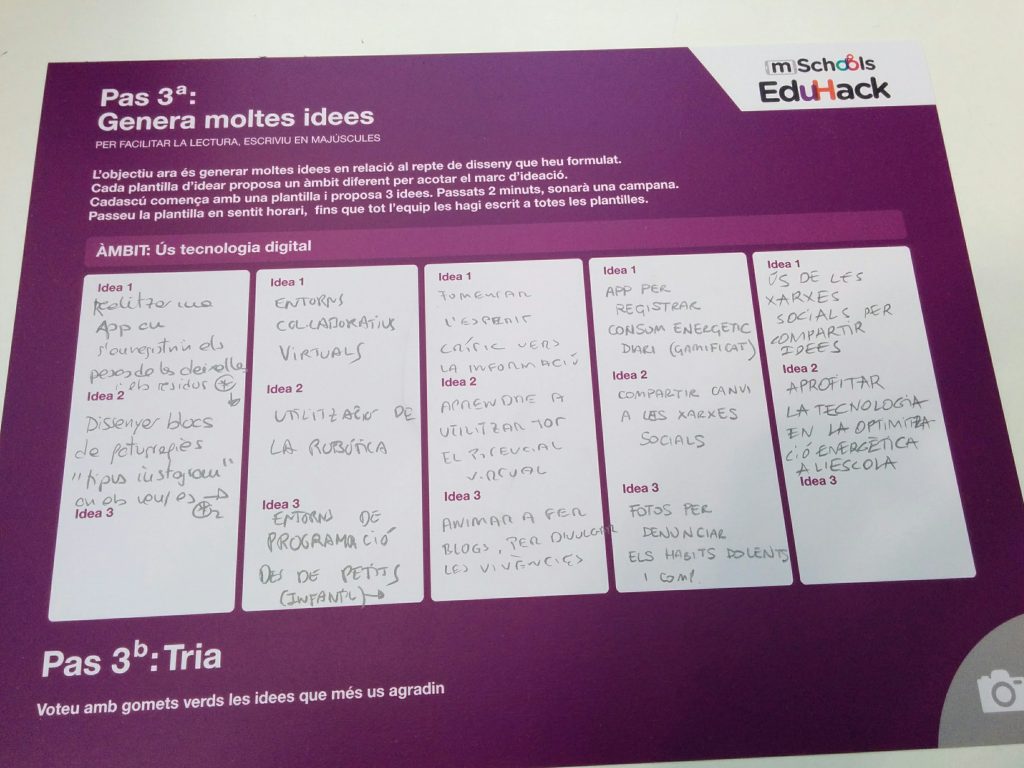 Pas 3ª:
Genera moltes idees
PER FACILITAR LA LECTURA, ESCRIVIU EN MAJÚSCULES
(m)Schools
EduHack
L'objectiu ara és generar moltes idees en relació al repte de disseny que heu formulat.
Cada plantilla d'idear proposa un àmbit diferent per acotar el marc d'ideació.
Cadascú comença amb una plantilla i proposa 3 idees. Passats 2 minuts, sonarà una campana.
Passeu la plantilla en sentit horari, fins que tot l'equip les hagi escrit a totes les plantilles.
ÀMBIT: Ús tecnologia digital
Idea 1
Realitzar una
App on
s'enregistrin els
pesos de les deixalles
i els residus
Idea 2
Dissenyar blocs
de
"tipus instagram"
on els
Idea 3
Idea 1
ENTORNS
COL·LABORATIUS
VIRTUALS
Idea 2
UTILITZACIÓ DE
LA ROBÒTICA
Idea 3
ENTORNS DE
PROGRAMACIÓ
DES DE PETITS
(INFANTIL)→
Idea 1
FOMENTAR
L'ESPERIT
CRÍTIC VERS
LA INFORMACIÓ
Idea 2
APRENDRE A
UTILITZAR TOT
EL POTENCIAL
VIRTUAL
Idea 3
ANIMAR A FER
BLOGS, PER DIVULGAR
LES VIVÈNCIES
Idea 1
APP PER
REGISTRAR
CONSUM ENERGETIC
DIARI (GAMIFICAT)
Idea 2
COMPARTIR CANVI
A LES XARXES
SOCIALS
Idea 3
FOTOS PER
DENUNCIAR
ELS HABITS DOLENTS
I COMP.
Idea 1
ÚS DE LES
XARXES
SOCIALS PER
COMPARTIR
IDEES
Idea 2
APROFITAR
LA TECNOLOGIA
EN LA OPTIMITZA-
CIÓ ENERGÈTICA
A L'ESCOLA
Idea 3
Pas 3ᵇ: Tria
Voteu amb gomets verds les idees que més us agradin